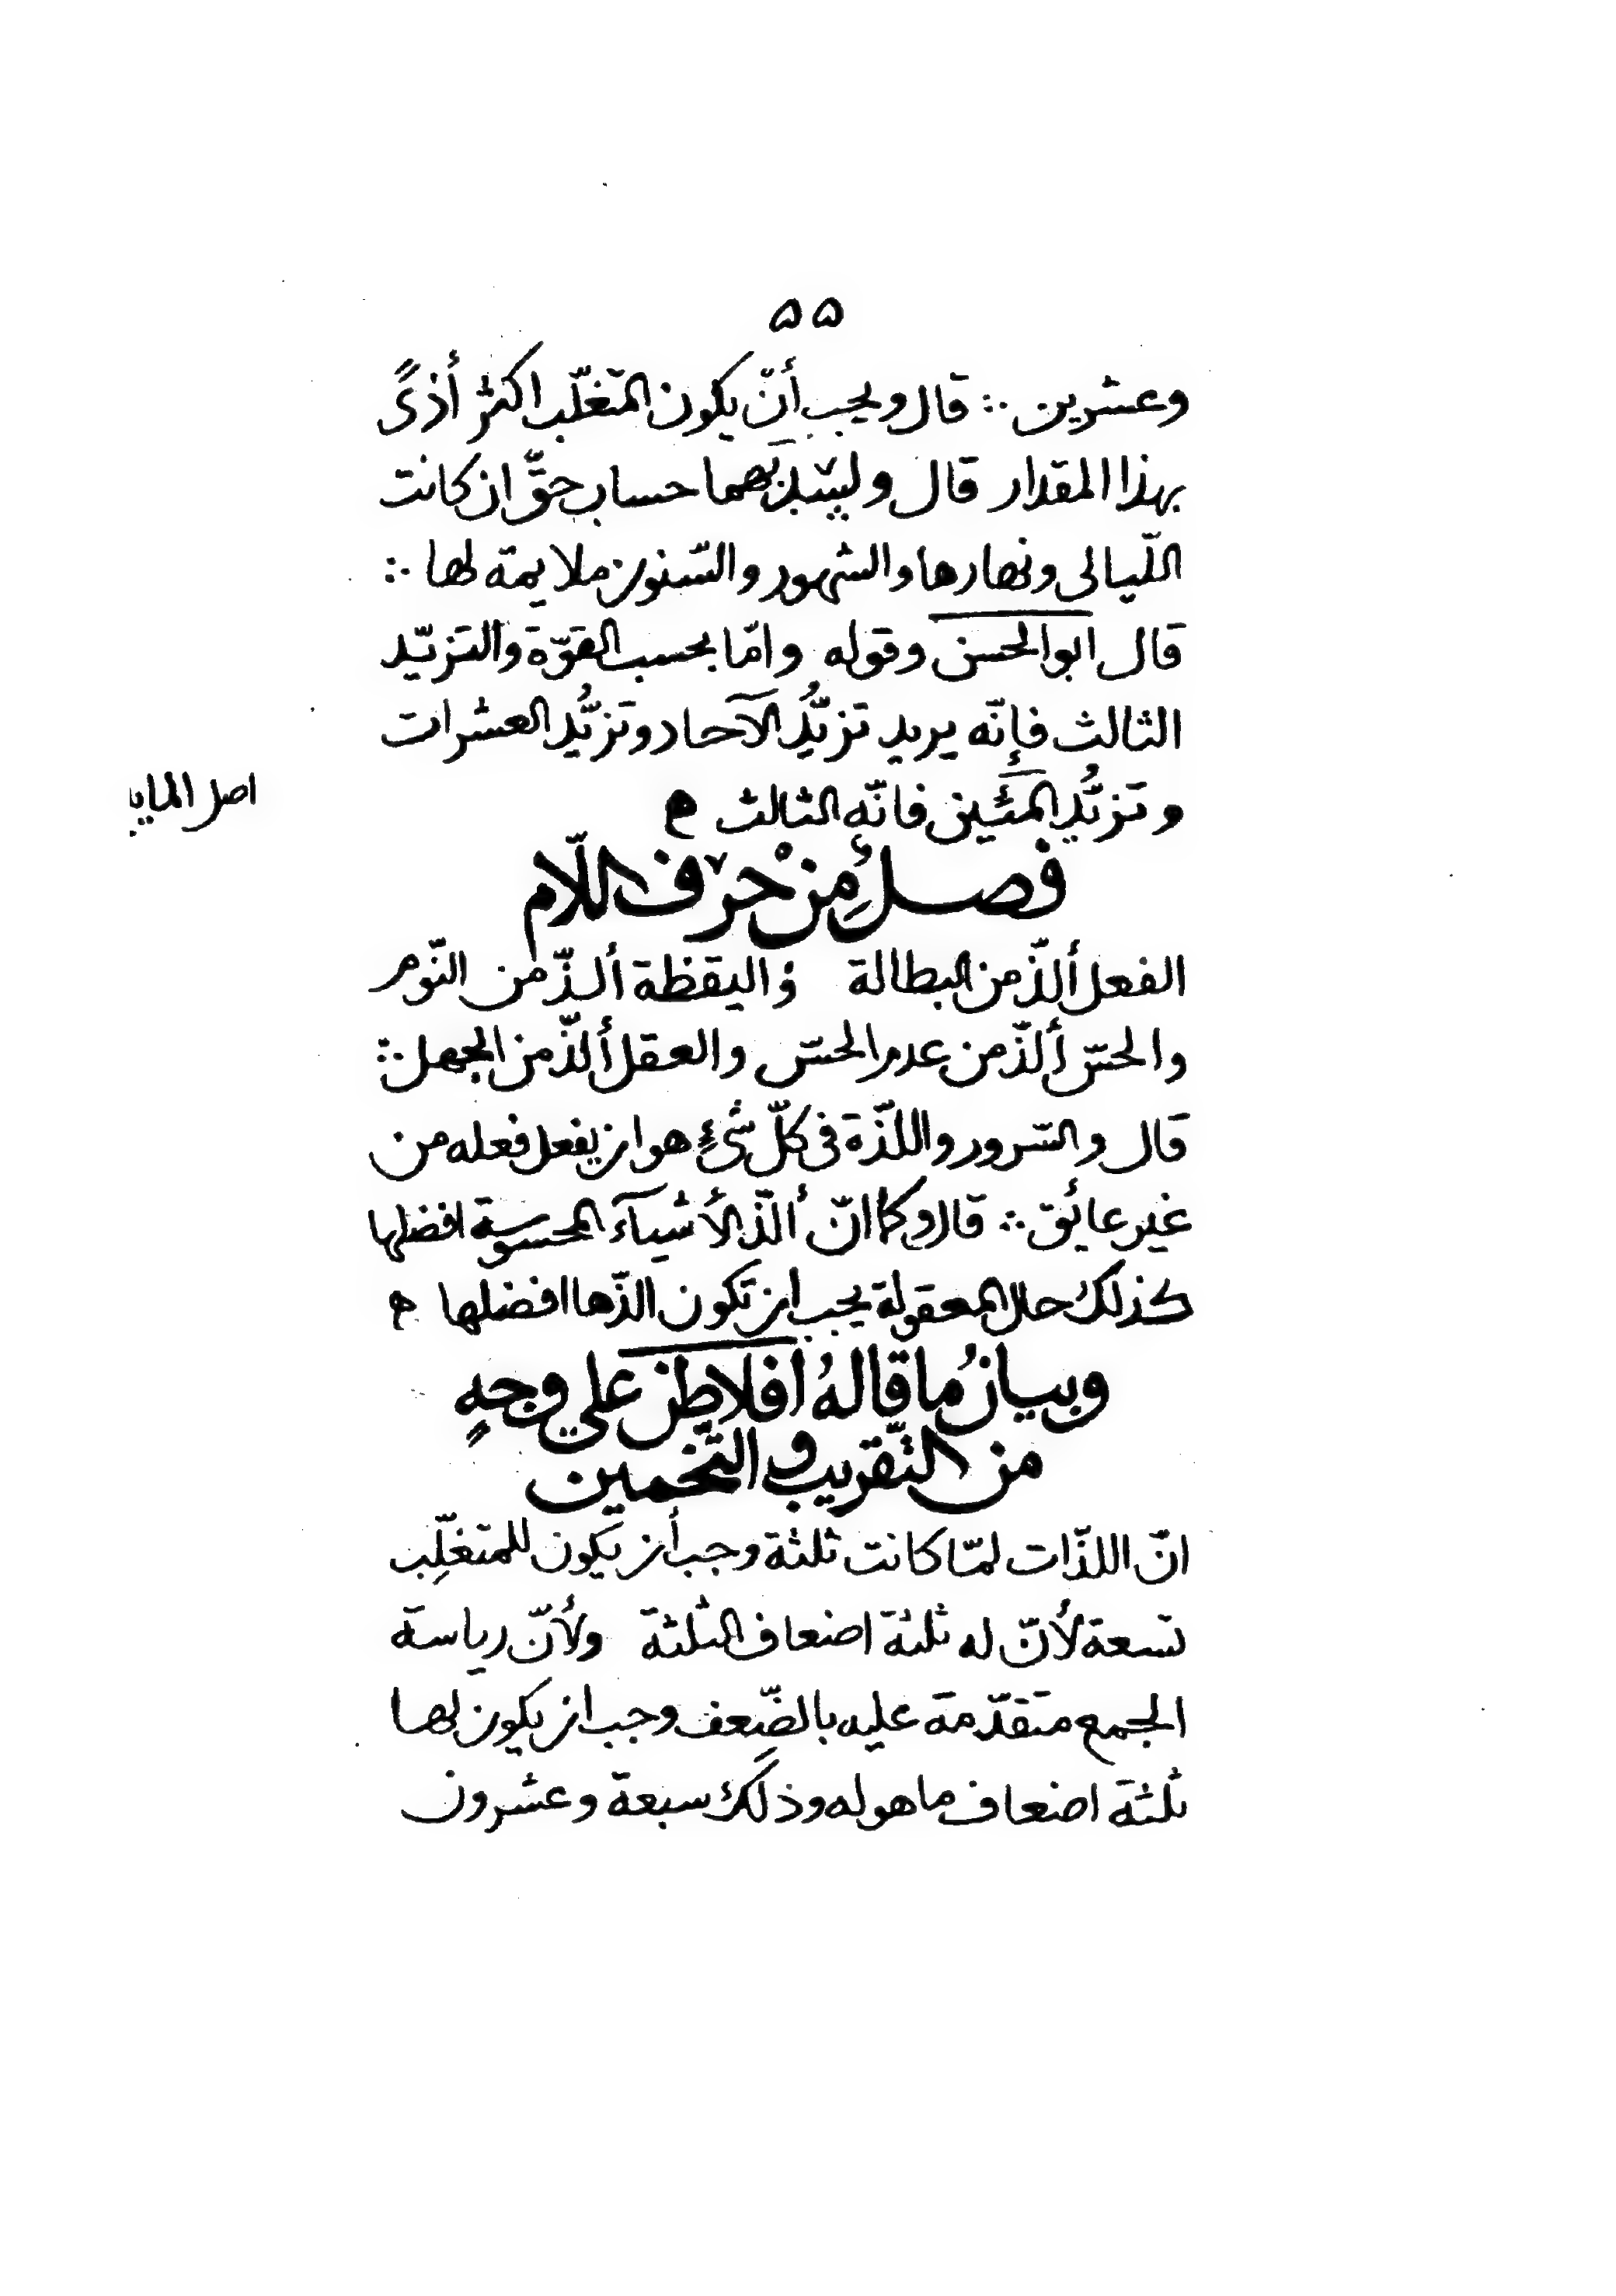 ۵۵
وعشرين ∴ قال ويجب أنّ يكون المتغلّب اكثر أذىً
بهذا المقدار قال و بهما حساب حقّ ان كانت
اللّيالى ونهارها والشهور والسّنون ملايمة لها ∴
قال ابو الحسن وقوله وامّا بحسب القوّة والتزيّد
الثالث فإنّه يريد تزيُّد الآحاد وتزيُّد العشرات
وتزيُّد المئين فانّه الثالث ه
اصل
فصلُ مِنْ حرف اللّام
الفعل ألذّ من البطالة و اليقظة ألذّ من النّوم
والحسّ ألذّ من عدم الحسّ والعقل ألذّ من الجهل ∴
قال والسّرور واللذّة فى كلّ شئٍ هو ان يفعل فعله من
غير عائق ∴ قال وكما انّ ألذّ الأشيآء المحسوسة افضلها
كذلك حال المعقولة يجب ان تكون الذّها افضلها ه
وبيانُ ما قالهُ افلاطن على وجهٍ
من التّقريب و التّخمين
انّ اللذّات لمّا كانت ثلثة وجب أن يكون للمتغلِّب
تسعة لأنّ له ثلثة اضعاف الثلثة ولأنّ رياسة
الجمع متقدّمة عليه بالضِّعف وجب ان يكون لها
ثلثة اضعاف ما هو له وذلك سبعة وعشرون